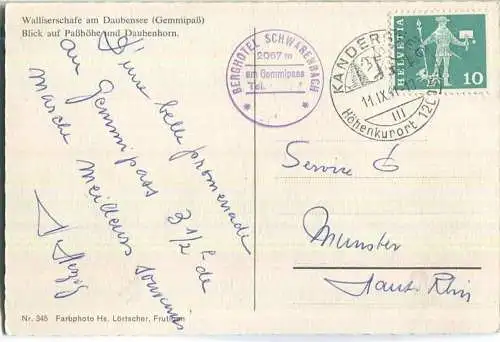 Walliserschafe am Daubensee (Gemmipaß)
Blick auf Paßhöhe und Daubenhorn.
D'une belle promenade
au Gemmipass 3 1/2 h de
marche meilleurs souvenirs
BERGHOTEL SCHWARENBACH
2067 m
am Gemmipass
Tel.
KANDERS
11.IX.6
III
Höhenkurort 120
HELVETIA
10
Service 6
Munster
Haut-Rhin
Nr. 345 Farbphoto Hs. Lörtscher, Frutigen